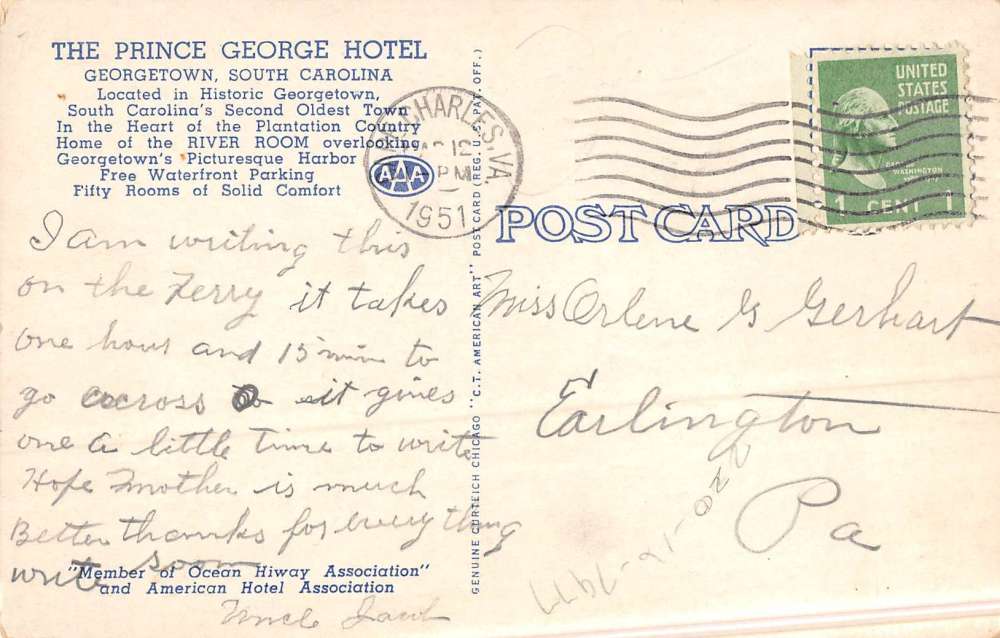 THE PRINCE GEORGE HOTEL
GEORGETOWN, SOUTH CAROLINA
Located in Historic Georgetown,
South Carolina's Second Oldest Town
In the Heart of the Plantation Country
Home of the RIVER ROOM overlooking
Georgetown's Picturesque Harbor
Free Waterfront Parking
Fifty Rooms of Solid Comfort
AAA
CHARLES, VA.
12
PM
1951
UNITED
STATES
POSTAGE
WASHINGTON
1 CENT 1
POST CARD
I am writing this
on the Ferry it takes
one hour and 15 min to
go across so it gives
one a little time to write
Hope Mother is much
Better thanks for every thing
write soon
"Member of Ocean Hiway Association"
and American Hotel Association
Uncle Jacob
GENUINE CURTEICH CHICAGO "C.T. AMERICAN ART" POST CARD (REG. U.S. PAT. OFF.)
Miss Orlene G Gerhart
Earlington
Pa